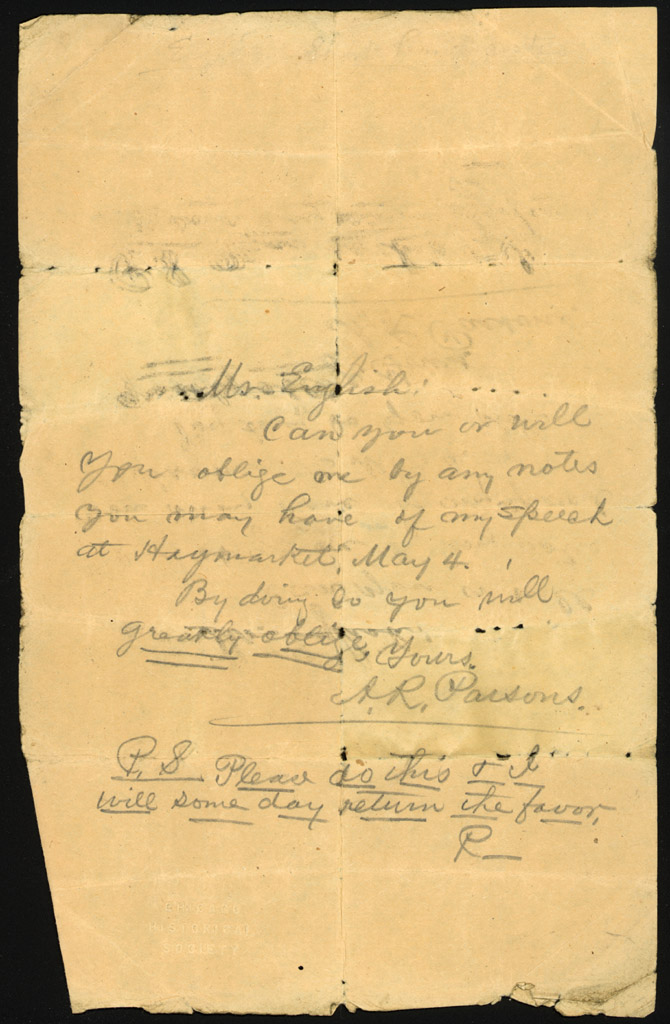 Mr. English:
Can you or will
You oblige me by any notes
you may have of my speech
at Haymarket, May 4.
By doing so you will
greatly oblige, Yours.
A. R. Parsons.
P. S. Please do this & I
will some day return the favor,
P—